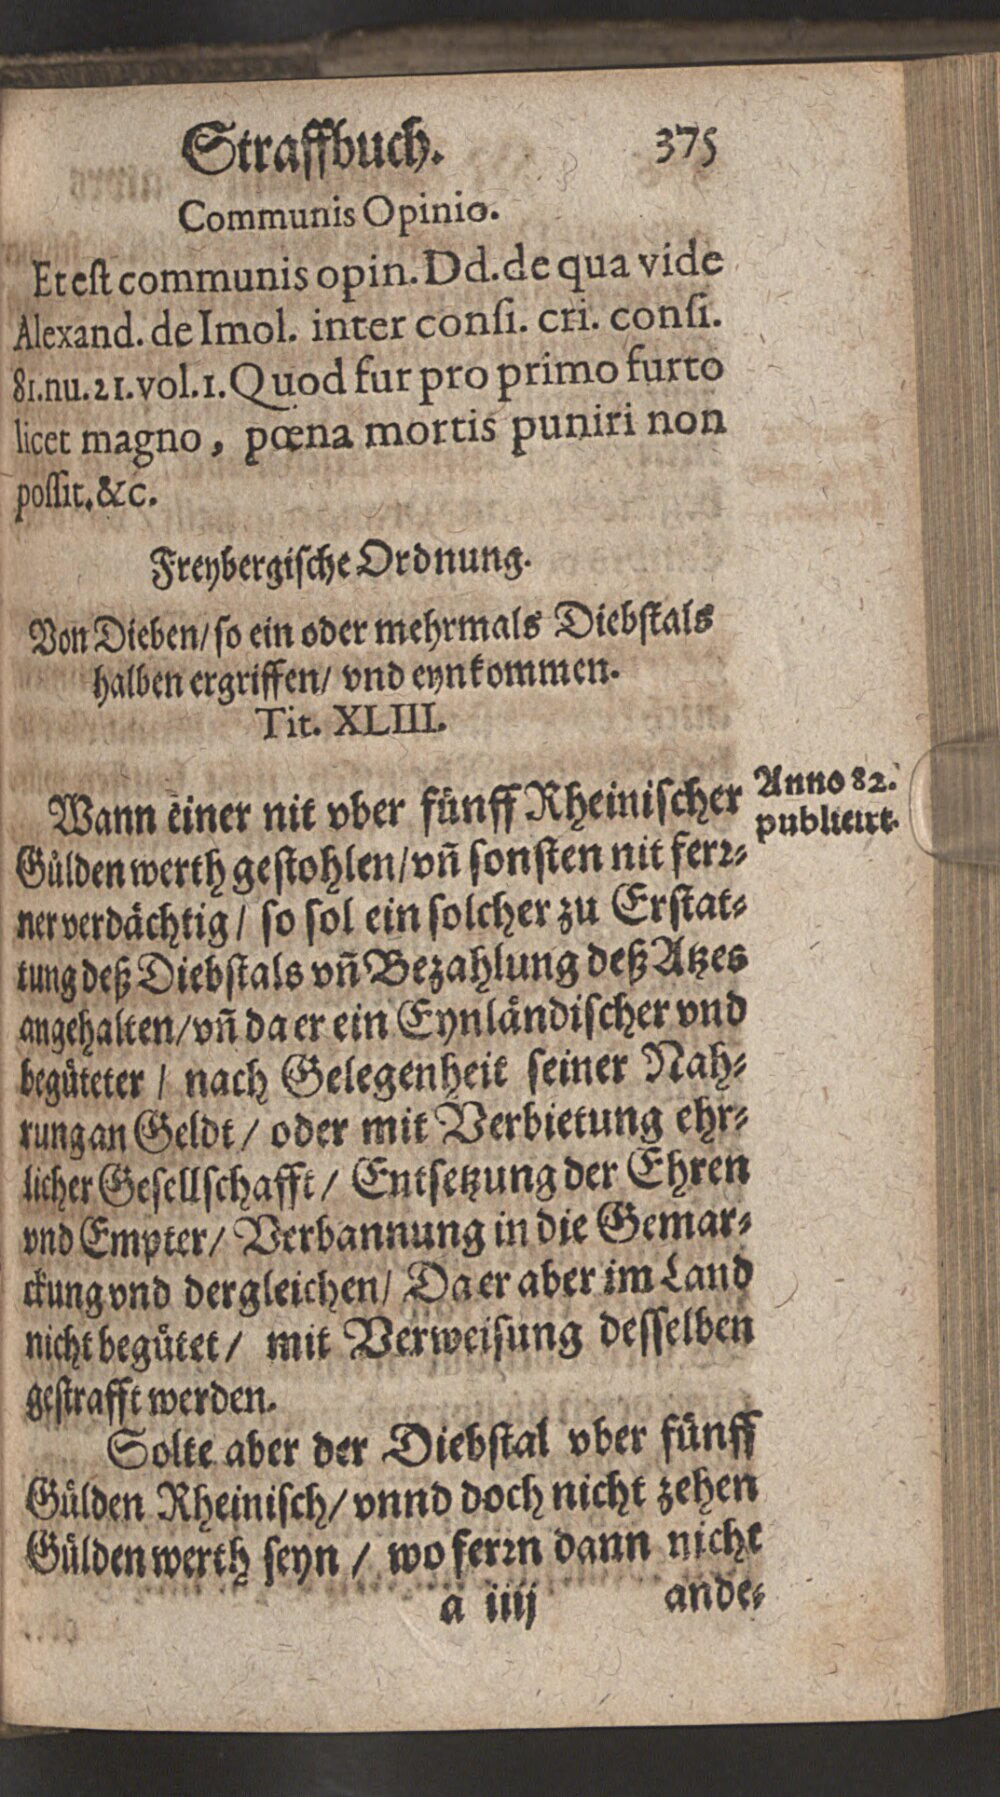 Straffbuch. 375
Communis Opinio.
Et est communis opin. Dd. de qua vide
Alexand. de Imol. inter consi. cri. consi.
81. nu. 21. vol. 1. Quod fur pro primo furto
licet magno, pœna mortis puniri non
possit. &c.
Freybergische Ordnung.
Von Dieben/ so ein oder mehrmals Diebstals
halben ergriffen/ vnd eynkommen.
Tit. XLIII.
Wann einer nit vber fünff Rheinischer
Gülden werth gestohlen/ vñ sonsten nit ferꝛ-
ner verdächtig/ so sol ein solcher zu Erstat-
tung deß Diebstals vñ Bezahlung deß Atzes
angehalten/ vñ da er ein Eynländischer vnd
begüteter/ nach Gelegenheit seiner Nah-
rung an Geldt/ oder mit Verbietung ehr-
licher Gesellschafft/ Entsetzung der Ehren
vnd Empter/ Verbannung in die Gemar-
ckung vnd dergleichen/ Da er aber im Land
nicht begütet/ mit Verweisung desselben
gestrafft werden.
Anno 82.
publicirt.
Solte aber der Diebstal vber fünff
Gülden Rheinisch/ vnnd doch nicht zehen
Gülden werth seyn/ wo ferꝛn dann nicht
a iiij ande-